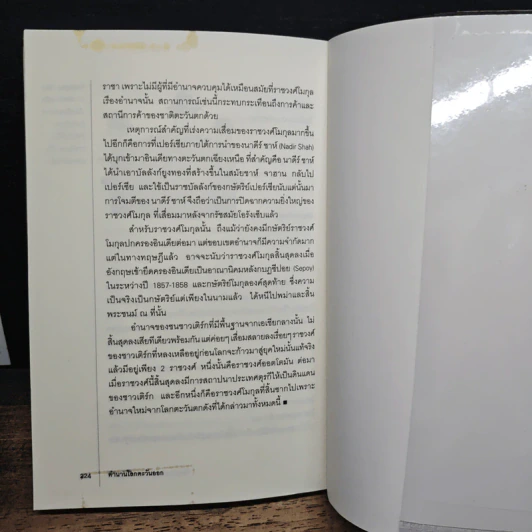 ราชา เพราะไม่มีผู้ที่มีอำนาจควบคุมได้เหมือนสมัยที่ราชวงศ์โมกุล
เรืองอำนาจนั้น สถานการณ์เช่นนี้กระทบกระเทือนถึงการค้าและ
สถานีการค้าของชาติตะวันตกด้วย
เหตุการณ์สำคัญที่เร่งความเสื่อมของราชวงศ์โมกุลมากขึ้น
ไปอีกก็คือการที่เปอร์เซียภายใต้การนำของนาดีร์ ชาห์ (Nadir Shah)
ได้บุกเข้ามาอินเดียทางตะวันตกเฉียงเหนือ ที่สำคัญคือ นาดีร์ ชาห์
ได้นำเอาบัลลังก์ยูงทองที่สร้างขึ้นในสมัยชาห์ จาฮาน กลับไป
เปอร์เซีย และใช้เป็นราชบัลลังก์ของกษัตริย์เปอร์เซียนับแต่นั้นมา
การโจมตีของ นาดีร์ ชาห์ จึงถือว่าเป็นการปิดฉากความยิ่งใหญ่ของ
ราชวงศ์โมกุล ที่เสื่อมมาหลังจากรัชสมัยโอรังเซ็บแล้ว
สำหรับราชวงศ์โมกุลนั้น ถึงแม้ว่ายังคงมีกษัตริย์ราชวงศ์
โมกุลปกครองอินเดียต่อมา แต่ขอบเขตอำนาจก็มีความจำกัดมาก
แต่ในทางทฤษฎีแล้ว อาจจะนับว่าราชวงศ์โมกุลสิ้นสุดลงเมื่อ
อังกฤษเข้ายึดครองอินเดียเป็นอาณานิคมหลังกบฏซีปอย (Sepoy)
ในระหว่างปี 1857-1858 และกษัตริย์โมกุลองค์สุดท้าย ซึ่งความ
เป็นจริงเป็นกษัตริย์แต่เพียงในนามแล้ว ได้หนีไปพม่าและสิ้น
พระชนม์ ณ ที่นั้น
อำนาจของชนชาวเติร์กที่มีพื้นฐานจากเอเชียกลางนั้น ไม่
สิ้นสุดลงเสียทีเดียวพร้อมกัน แต่ค่อยๆ เสื่อมสลายลงเรื่อยๆ ราชวงศ์
ของชาวเติร์กที่หลงเหลืออยู่ก่อนโลกจะก้าวมาสู่ยุคใหม่นั้นแท้จริง
แล้วมีอยู่เพียง 2 ราชวงศ์ หนึ่งนั้นคือราชวงศ์ออตโตมัน ต่อมา
เมื่อราชวงศ์นี้สิ้นสุดลงมีการสถาปนาประเทศตุรกีให้เป็นดินแดน
ของชาวเติร์ก และอีกหนึ่งก็คือราชวงศ์โมกุลที่สิ้นซากไปเพราะ
อำนาจใหม่จากโลกตะวันตกดังที่ได้กล่าวมาทั้งหมดนี้ ■
224 ตำนานโลกตะวันออก